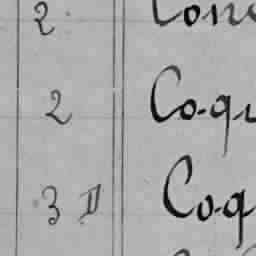 2. Con
2 Co-qu
3 D Co-q